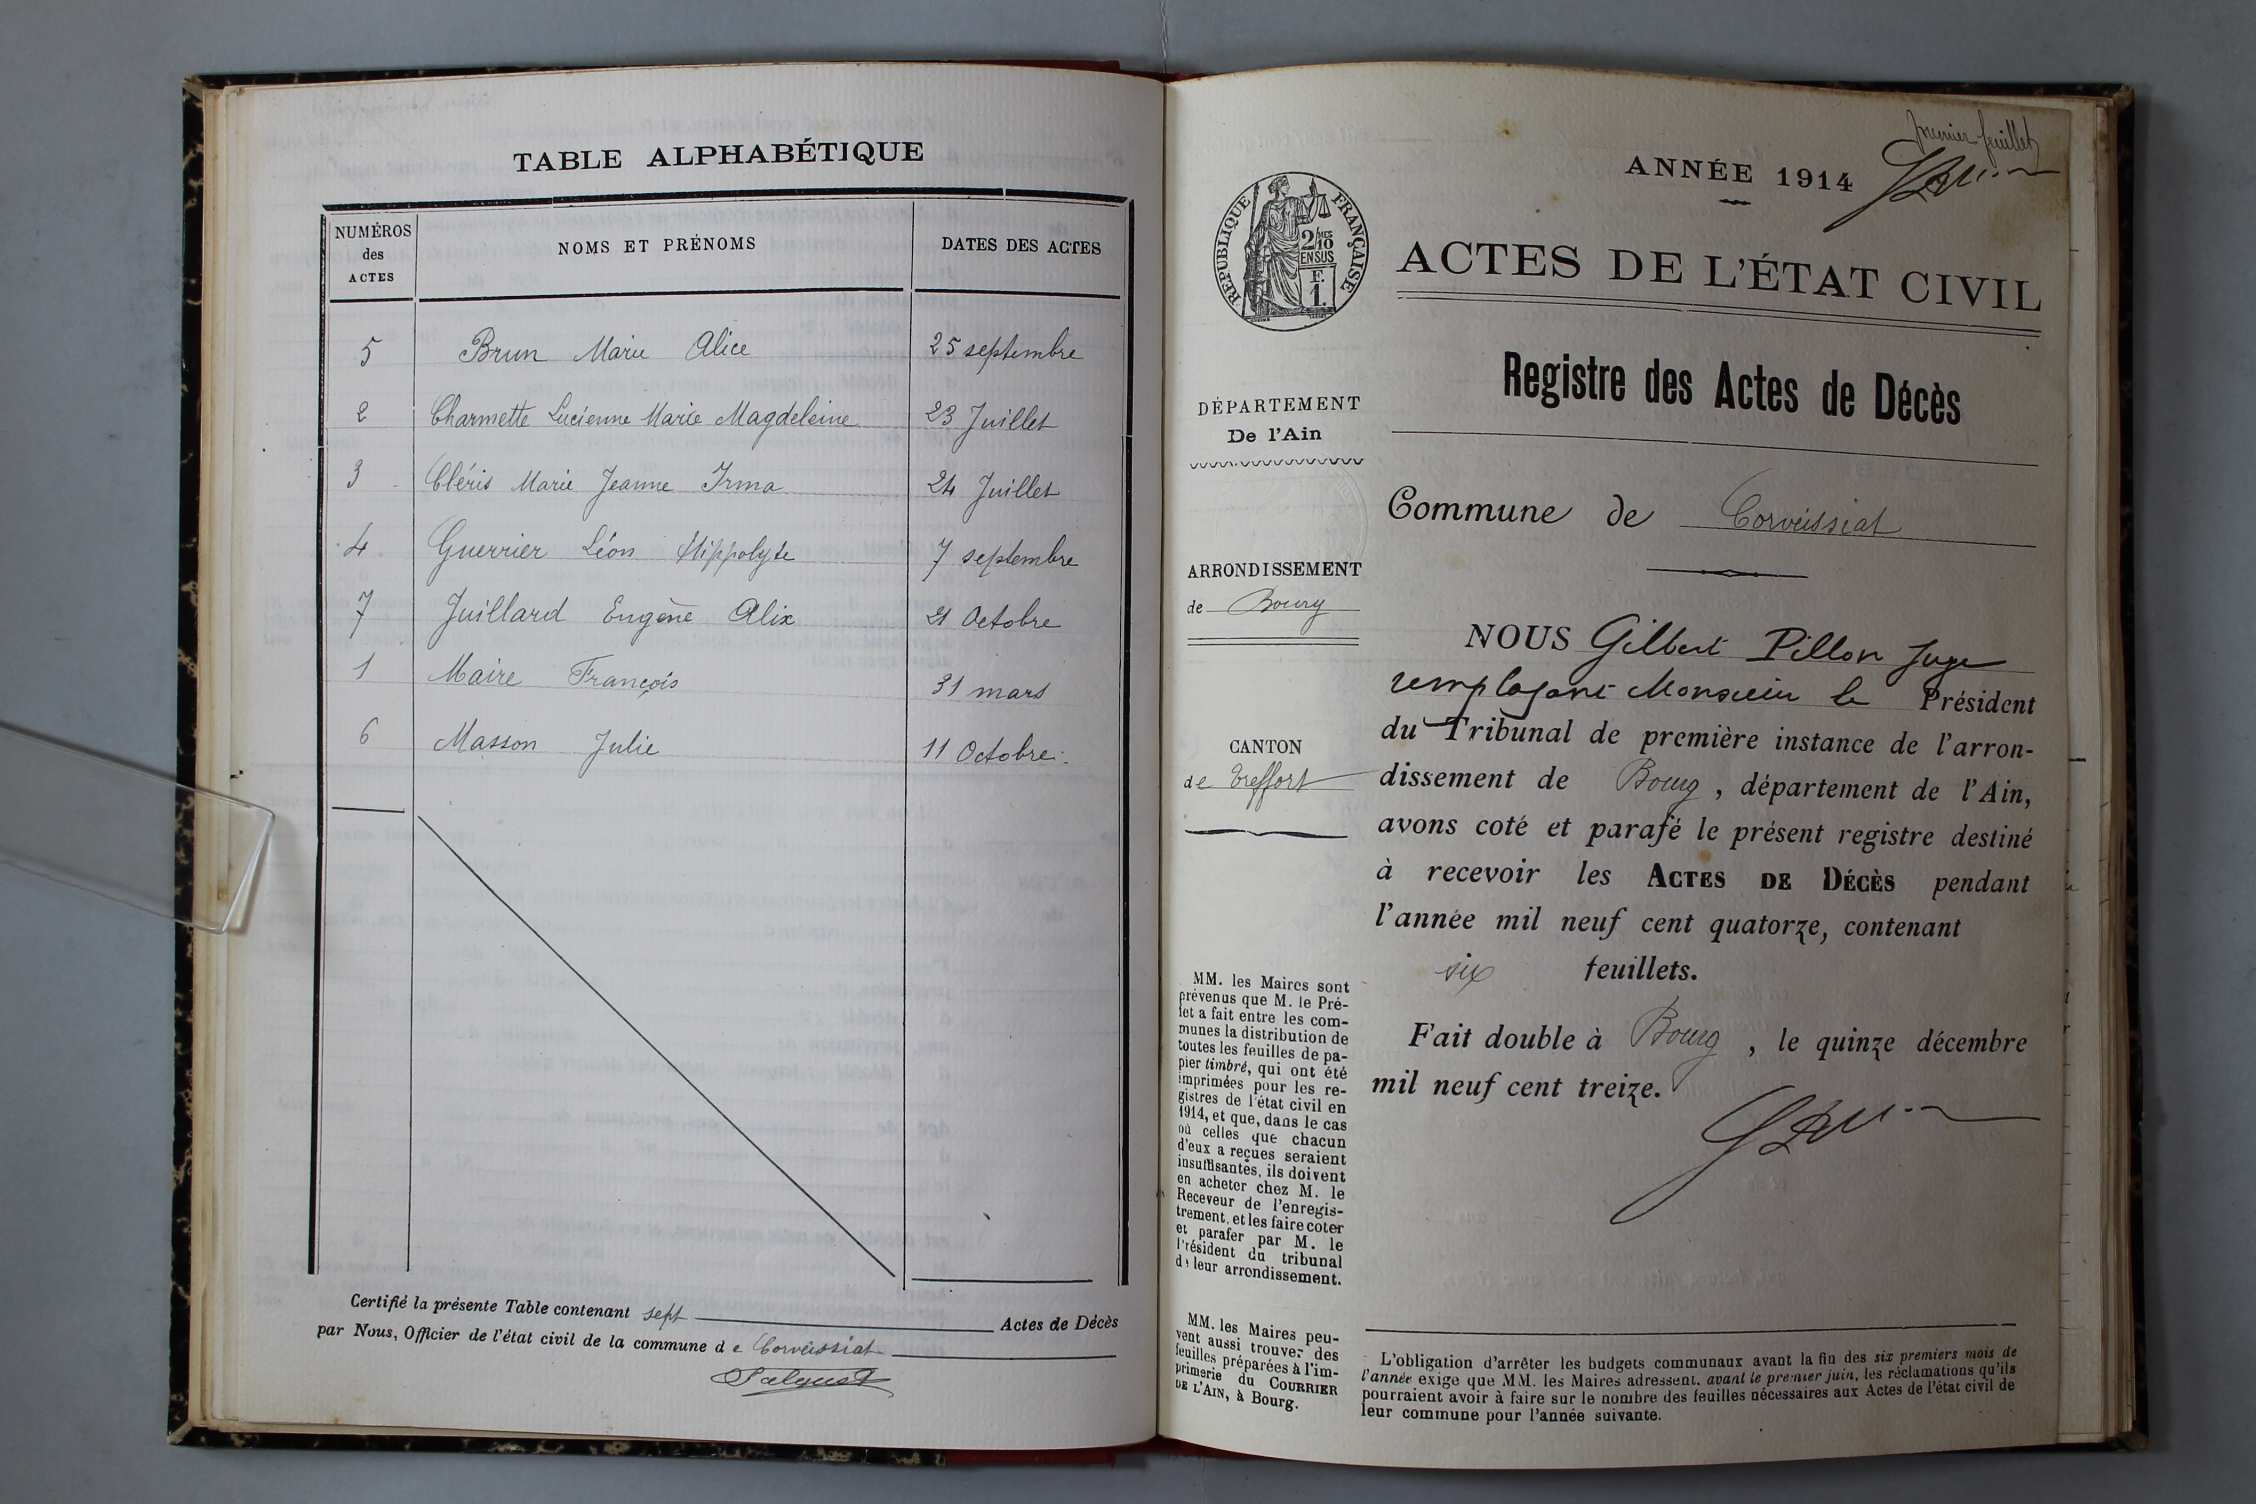 TABLE ALPHABÉTIQUE
NUMÉROS
des
ACTES
NOMS ET PRÉNOMS
DATES DES ACTES
5 Brun Marie Alice 25 septembre
2 Charmette Lucienne Marie Magdeleine 23 Juillet
3 Cléris Marie Jeanne Irma 24 Juillet
4 Guerrier Léon Hippolyte 7 septembre
7 Juillard Eugène Alix 21 Octobre
1 Maire François 31 mars
6 Masson Julie 11 Octobre
Certifié la présente Table contenant sept Actes de Décès
par Nous, Officier de l'état civil de la commune d e Corveissiat
premier feuillet
ANNÉE 1914
RÉPUBLIQUE FRANÇAISE
2/10 MES
EN SUS
F.
1.
ACTES DE L'ÉTAT CIVIL
Registre des Actes de Décès
DÉPARTEMENT
De l'Ain
Commune de Corveissiat
ARRONDISSEMENT
de Bourg
CANTON
de Treffort
NOUS Gilbert Pillon Juge
remplaçant Monsieur le Président
du Tribunal de première instance de l'arron-
dissement de Bourg, département de l'Ain,
avons coté et parafé le présent registre destiné
à recevoir les ACTES DE DÉCÈS pendant
l'année mil neuf cent quatorze, contenant
six feuillets.
Fait double à Bourg, le quinze décembre
mil neuf cent treize.
MM. les Maires sont
prévenus que M. le Pré-
fet a fait entre les com-
munes la distribution de
toutes les feuilles de pa-
pier timbré, qui ont été
imprimées pour les re-
gistres de l'état civil en
1914, et que, dans le cas
où celles que chacun
d'eux a reçues seraient
insuffisantes, ils doivent
en acheter chez M. le
Receveur de l'enregis-
trement, et les faire coter
et parafer par M. le
Président du tribunal
de leur arrondissement.
MM. les Maires peu-
vent aussi trouver des
feuilles préparées à l'im-
primerie du COURRIER
DE L'AIN, à Bourg.
L'obligation d'arrêter les budgets communaux avant la fin des six premiers mois de
l'année exige que MM. les Maires adressent, avant le premier juin, les réclamations qu'ils
pourraient avoir à faire sur le nombre des feuilles nécessaires aux Actes de l'état civil de
leur commune pour l'année suivante.